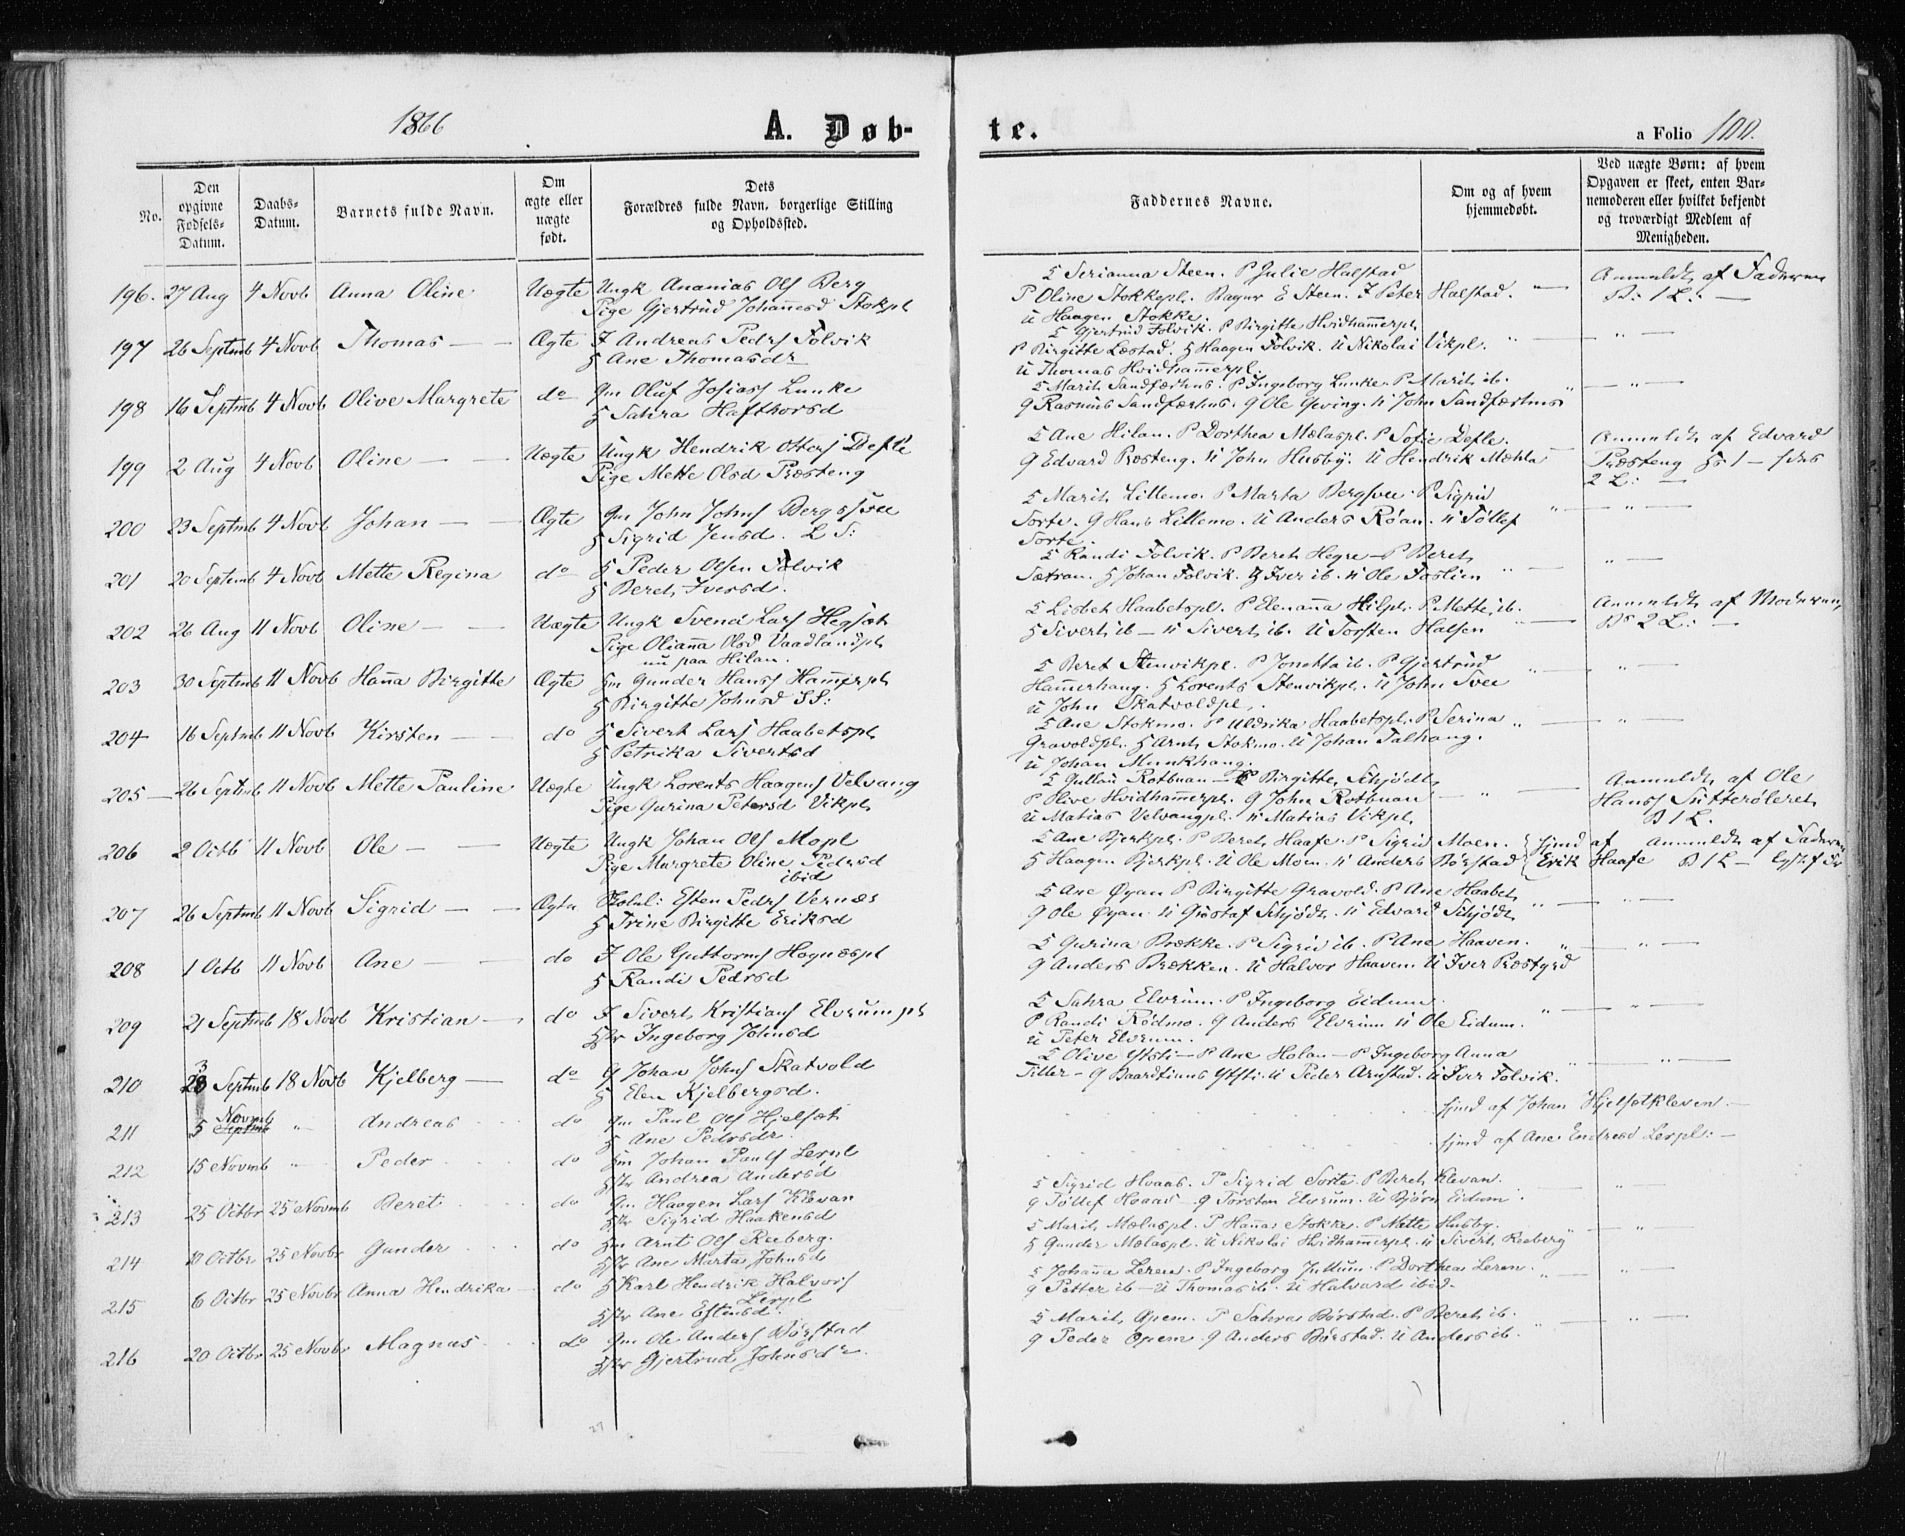 1866
A. Døb-
te.
a Folio 100.
No.
Den opgivne Fødsels-Datum.
Daabs-Datum.
Barnets fulde Navn.
Om ægte eller uægte født.
Dets Forældres fulde Navn, borgerlige Stilling og Opholdssted.
Faddernes Navne.
Om og af hvem hjemmedøbt.
Ved uægte Børn: af hvem Opgaven er skeet, enten Barnemoderen eller hvilket bekjendt og troværdigt Medlem af Menigheden.
196. 27 Aug 4 Novb Anna Oline Uægte Ungk Ananias Ols Berg
Pige Gjertrud Johannesd Stokpl
5 Serianna Steen. P Julie Halstad
P Oline Stokkepl. Ragnr E Steen. F Peter Halstad. " —
U Haagen Stokke.
Anmeldt af Faderen
B: 1 L: —
197 26 Septmb 4 Novb Thomas — — Ægte F Andreas Peders Folvik
5 Ane Thomasdr
5 Gjertrud Folvik. P Birgitte Hvidhammerpl
P Birgitte Læstad. 5 Haagen Folvik. U Nikolai Vikpl. " — " —
U Thomas Hvidhammerpl.
198 16 Septmb 4 Novb Olive Margrete do Gm Oluf Josias Lunke
5 Sahra Hafthorsd
5 Marit Sandfærhus. P Ingeborg Lunke. P Marit ib.
G Rasmus Sandfærhus. G Ole Geving. U John Sandfærhus " — " —
199 2 Aug 4 Novb Oline — — Uægte Ungk Hendrik Otters Defle
Pige Mette Olsd Præsteng
5 Ane Hilan. P Dorthea Mælaspl. P Sofie Defle.
G Edvard Præsteng. U John Husby. U Hendrik Mæhla
Anmeldt af Edvard
Præsteng
2 L: —
200 23 Septmb 4 Novb Johan — — Ægte Gm John Johns Bergssvee
5 Sigrid Jensd. L S:
5 Marit Lillemo. P Marta Bergsvee. P Sigrid
Sorte. G Hans Lillemo. U Anders Røan. U Tøllef " — " —
Sorte.
201 20 Septemb 4 Novb Mette Regina do 5 Peder Olsen Folvik
5 Beret Iversd.
5 Randi Folvik. P Beret Hegre — P Beret
Sætran. 5 Johan Folvik. 5 Iver ib. U Ole Foslien " — " —
202 26 Aug 11 Novb Oline — — Uægte Ungk Svend Lars Hegsæt
Pige Olianna Olsd Vaadlandspl
nu paa Hilan.
5 Lisbet Haabetspl. P Elenanna Hilpl. P Mette ib.
5 Sivert ib — U Sivert ib. U Torsten Halsen " —
Anmeldt af Moderen,
B: 2 L: —
203 30 Septmb 11 Novb Hanna Birgitte Ægte Gm Gunder Hans Hammerpl
5 Birgitte Johnsd SS:
5 Beret Stenvikpl. P Jonetta ib. P Gjertrud
Hammerhang. 5 Lorents Stenvikpl. U John Svee " — " —
U John Skatvoldpl.
204 16 Septmb 11 Novb Kirsten — — do 5 Sivert Lars Haabetspl
5 Petrika Sivertsd
5 Ane Stokmo. P Uldrika Haabetspl. P Serina " — " —
Gravoldpl. 5 Arnt Stokmo. U Johan Falhang.
U Johan Munkhang.
205 — 26 Septmb 11 Novb Mette Pauline Uægte Ungk Lorents Haagens Velvang
Pige Gurina Petersd Vikpl
5 Gullau Rotbuan — P Birgitte Schjødt
P Olive Hvidhammerpl. G John Rotbuan — " —
U Matias Velvangpl. U Matias Vikpl.
Anmeldt af Ole
Hans Sutterøleret
B 1 L.
206 2 Octb 11 Novb Ole — — Uægte Ungk Johan Ols Mopl
Pige Margrete Oline Pedrsd
ibid
5 Ane Bjerkpl. P Beret Haafe. P Sigrid Moen.
5 Haagen Bjerkpl. U Ole Moen. U Anders Børstad
hjmd af
Erik Haafe
Anmeldt af Faderen
B 1 L —
207 26 Septmb 11 Novb Sigrid — — Ægte Skolel: Esten Peders Vernæs
5 Trine Birgitte Eriksd
5 Ane Øyan P Birgitte Gravold. P Ane Haabet
G Ole Øyan. U Gustaf Schjødt. U Edvard Schjødt " — " —
208 1 Octb 11 Novb Ane — — do F Ole Guttorms Hognæspl
5 Randi Pedrsd
5 Gurina Brække. P Sigrid ib. P Ane Haaven.
G Anders Brækken. U Halvor Haaven. U Iver Præstgrd " — " —
209 21 Septmb 18 Novb Kristian — do F Sivert Kristians Elvrumpl
Hstr Ingeborg Johnsd
5 Sahra Elvrum. P Ingeborg Eidum.
P Randi Rødmo. G Anders Elvrum U Ole Eidum. " — " —
U Peter Elvrum.
210 23 Septmb 18 Novb Kjelberg — do G Johan Johns Skatvold
5 Elen Kjelbergsd.
5 Olive Ytsti — P Ane Holan — P Ingeborg Anna
Titter — G Baardtinus Ytsti. U Peder Arnstad. U Iver Folvik. " — " —
211 5 Novmb " Andreas do Gm Paul Ols Hjelset
5 Ane Pedrsdr.
hjmd af Johan Hjelsetkleven —
212 15 Novmb " Peder do Gm Johan Pauls Lerpl
Hstr Andrea Andersd
hjmd af Ane Endresd Lerpl: —
213 25 Octbr 25 Novmb Beret do Gm Haagen Lars Klevan
Hstr Sigrid Haakensd
5 Sigrid Hoaas. P Sigrid Sorte. P Beret Klevan.
G Tøllef Hoaas — G Torsten Elvrum. U Bjørn Eidum. " — " —
214 10 Octbr 25 Novbr Gunder do Gm Arnt Ols Reeberg.
Hstr Ane Marta Johnsd
5 Marit Mælaspl. P Hanna Stokke. P Mette Husby.
5 Gunder Mælaspl. U Nikolai Hvidhammerpl. U Sivert Reeberg " — " —
215 6 Octbr 25 Novbr Anna Hendrika do 5 Karl Hendrik Halvors
Lerpl
Hstr Ane Estensd.
5 Johanna Leren. P Ingeborg Jullum. P Dorthea Leren.
G Petter ib — U Thomas ib. U Halvard ibid. " — " —
216 20 Octbr 25 Novbr Magnus do Gm Ole Anders Børstad
Hstr Gjertrud Johnsdr.
5 Marit Opem. P Sahra Børstad. P Beret ib.
G Peder Opem. G Anders Børstad. U Anders ib. " — " —
27